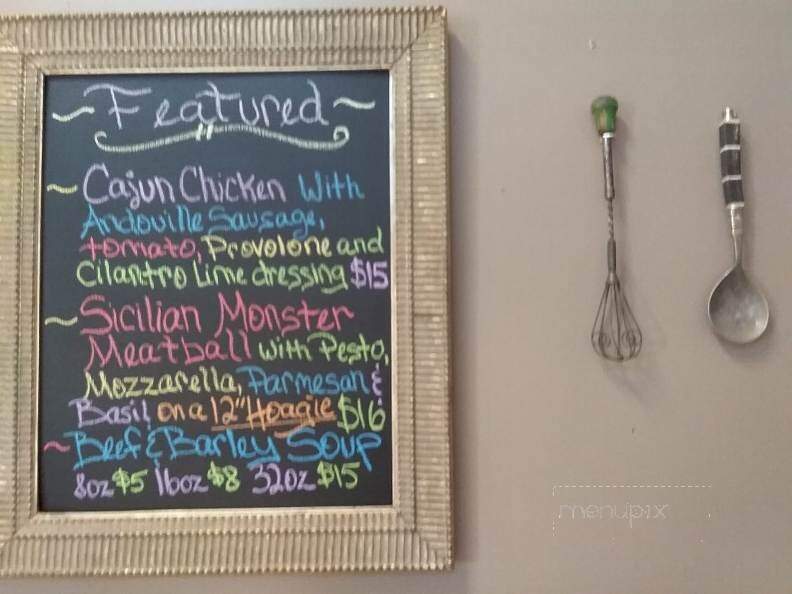 ~ Featured ~
~ Cajun Chicken With
Andouille Sausage,
tomato, Provolone and
Cilantro Lime dressing $15
~ Sicilian Monster
Meatball with Pesto,
Mozzarella, Parmesan &
Basil on a 12" Hoagie $16
~ Beef & Barley Soup
8oz $5 16oz $8 32oz $15
menupix